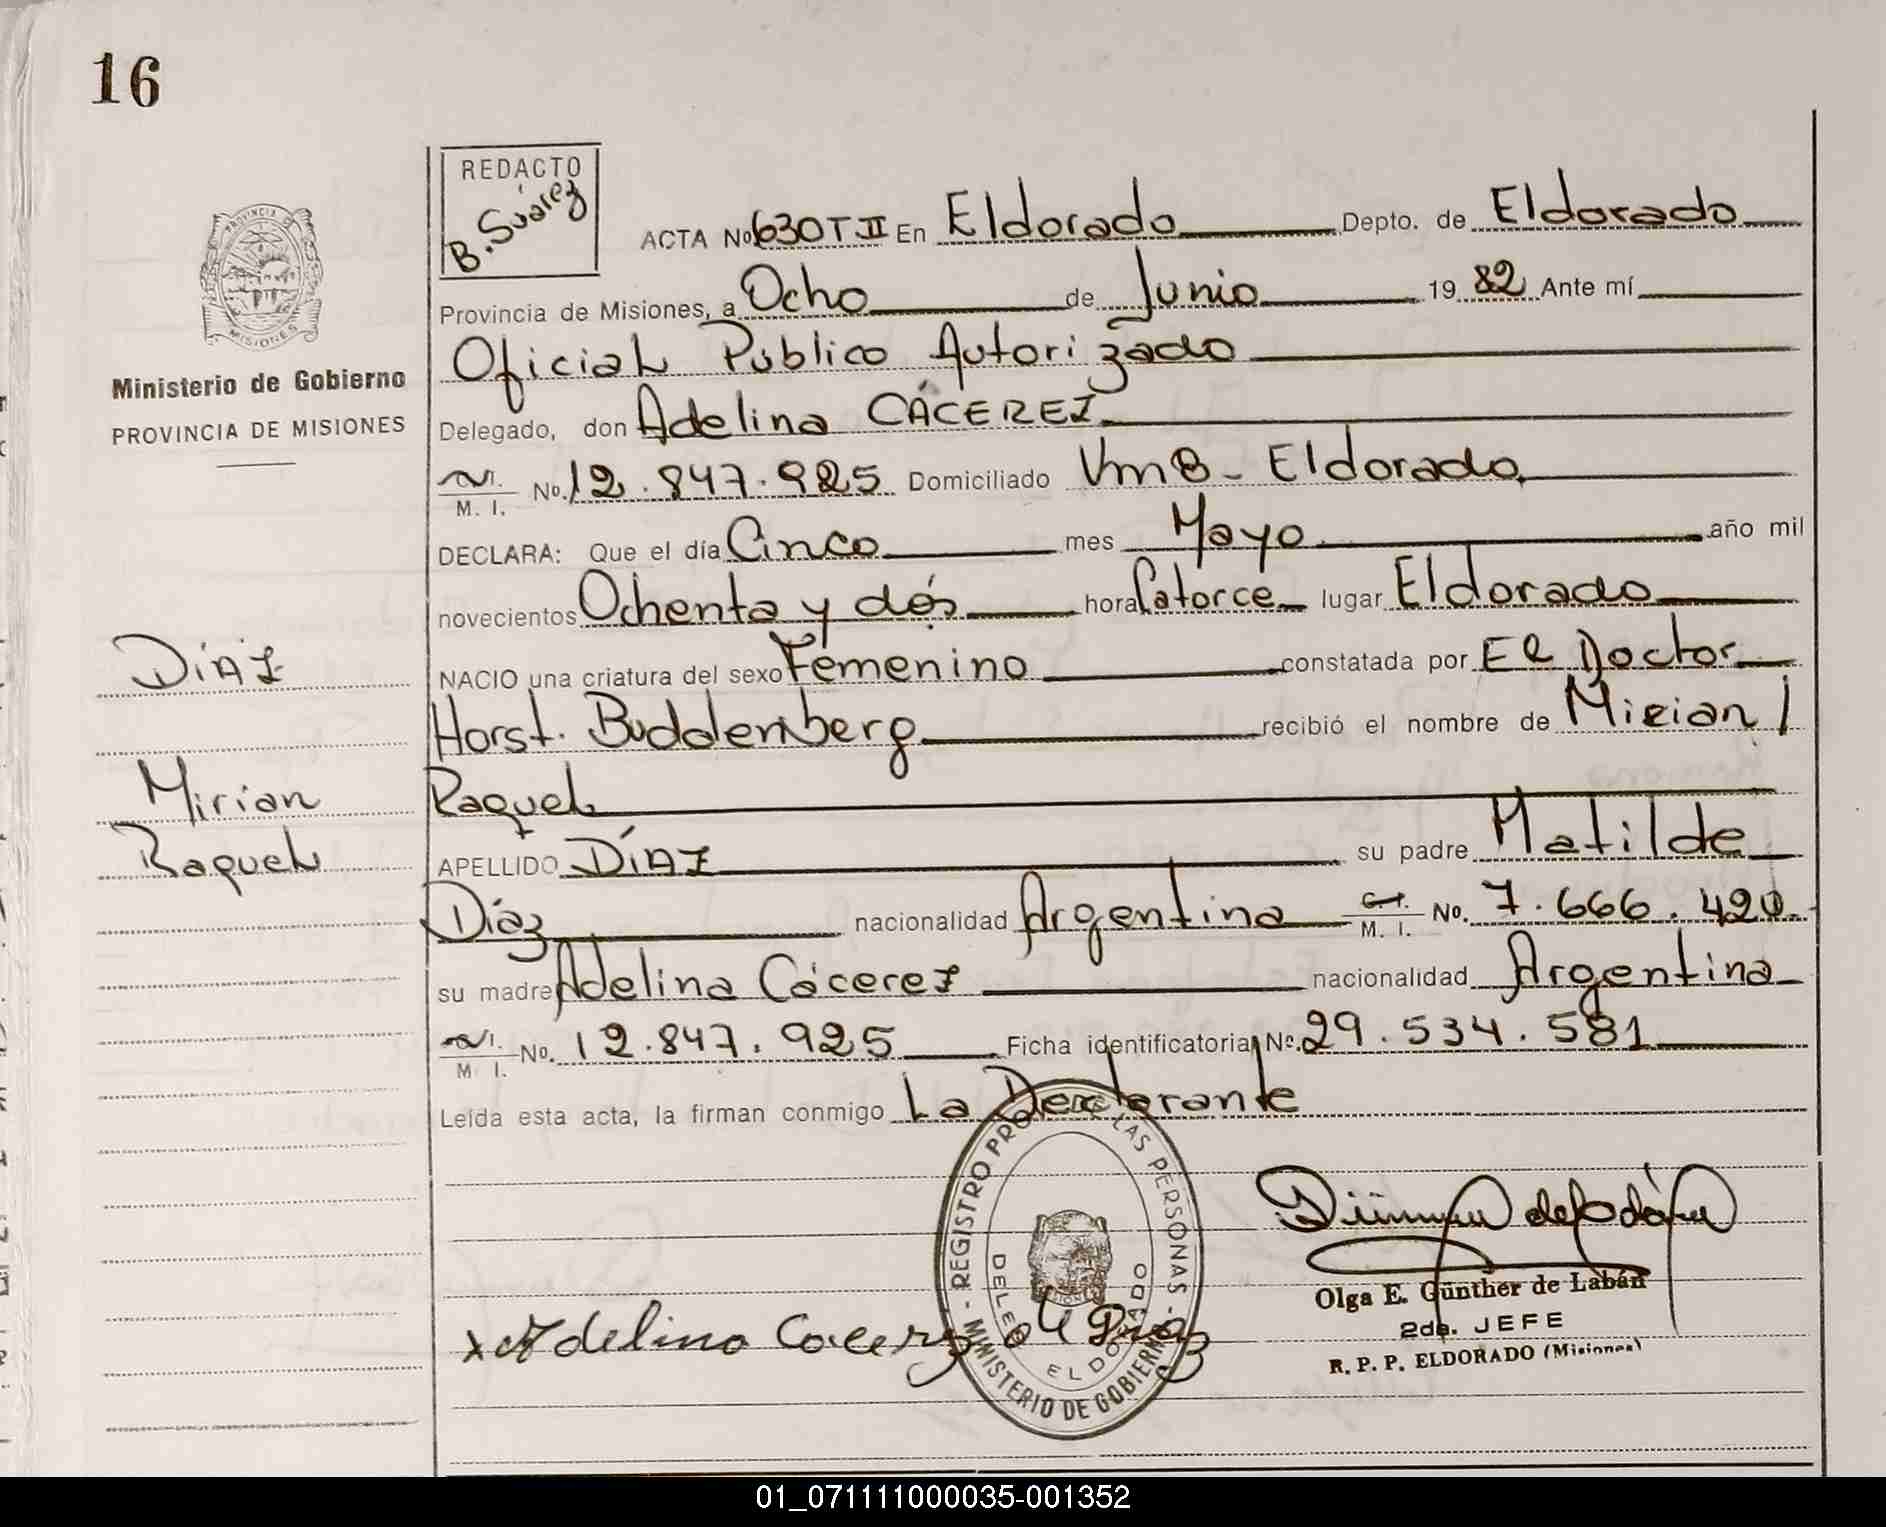 16
REDACTO
B. Suárez
ACTA No 630 T II En Eldorado Depto. de Eldorado
Provincia de Misiones, a Ocho de Junio 19 82 Ante mí
Oficial Público Autorizado
Ministerio de Gobierno
PROVINCIA DE MISIONES
Delegado, don Adelina CÁCEREZ
M. I. No. 12.847.925 Domiciliado Km 8 - Eldorado
DECLARA: Que el día Cinco mes Mayo año mil
novecientos Ochenta y dós hora Catorce lugar Eldorado
DíAZ
NACIO una criatura del sexo Femenino constatada por El Doctor
Horst. Buddemberg recibió el nombre de Mirian
Mirian
Raquel
Raquel
APELLIDO DÍAZ su padre Matilde
Díaz nacionalidad Argentina M. I. No. 7.666.420
su madre Adelina Cácerez nacionalidad Argentina
M. I. No. 12.847.925 Ficha identificatoria No. 29.534.581
Leída esta acta, la firman conmigo La Declarante
REGISTRO PRO LAS PERSONAS - MINISTERIO DE GOBIERN
ELDORADO
MISIONES
x Adelina Cacerez
Olga E. Günther de Labán
2da. JEFE
R. P. P. ELDORADO (Misiones)
01_071111000035-001352